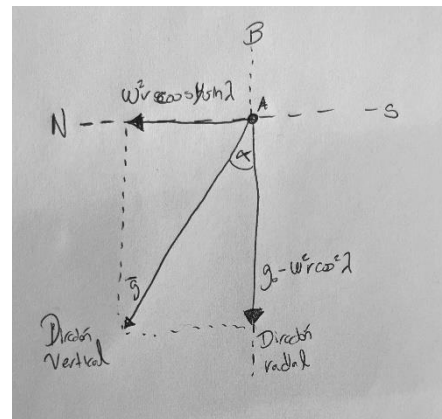 B
ω²r cos λ sin λ
A
N
S
α
g₀ - ω²r cos² λ
g̅
Dirección
Vertical
Dirección
radial